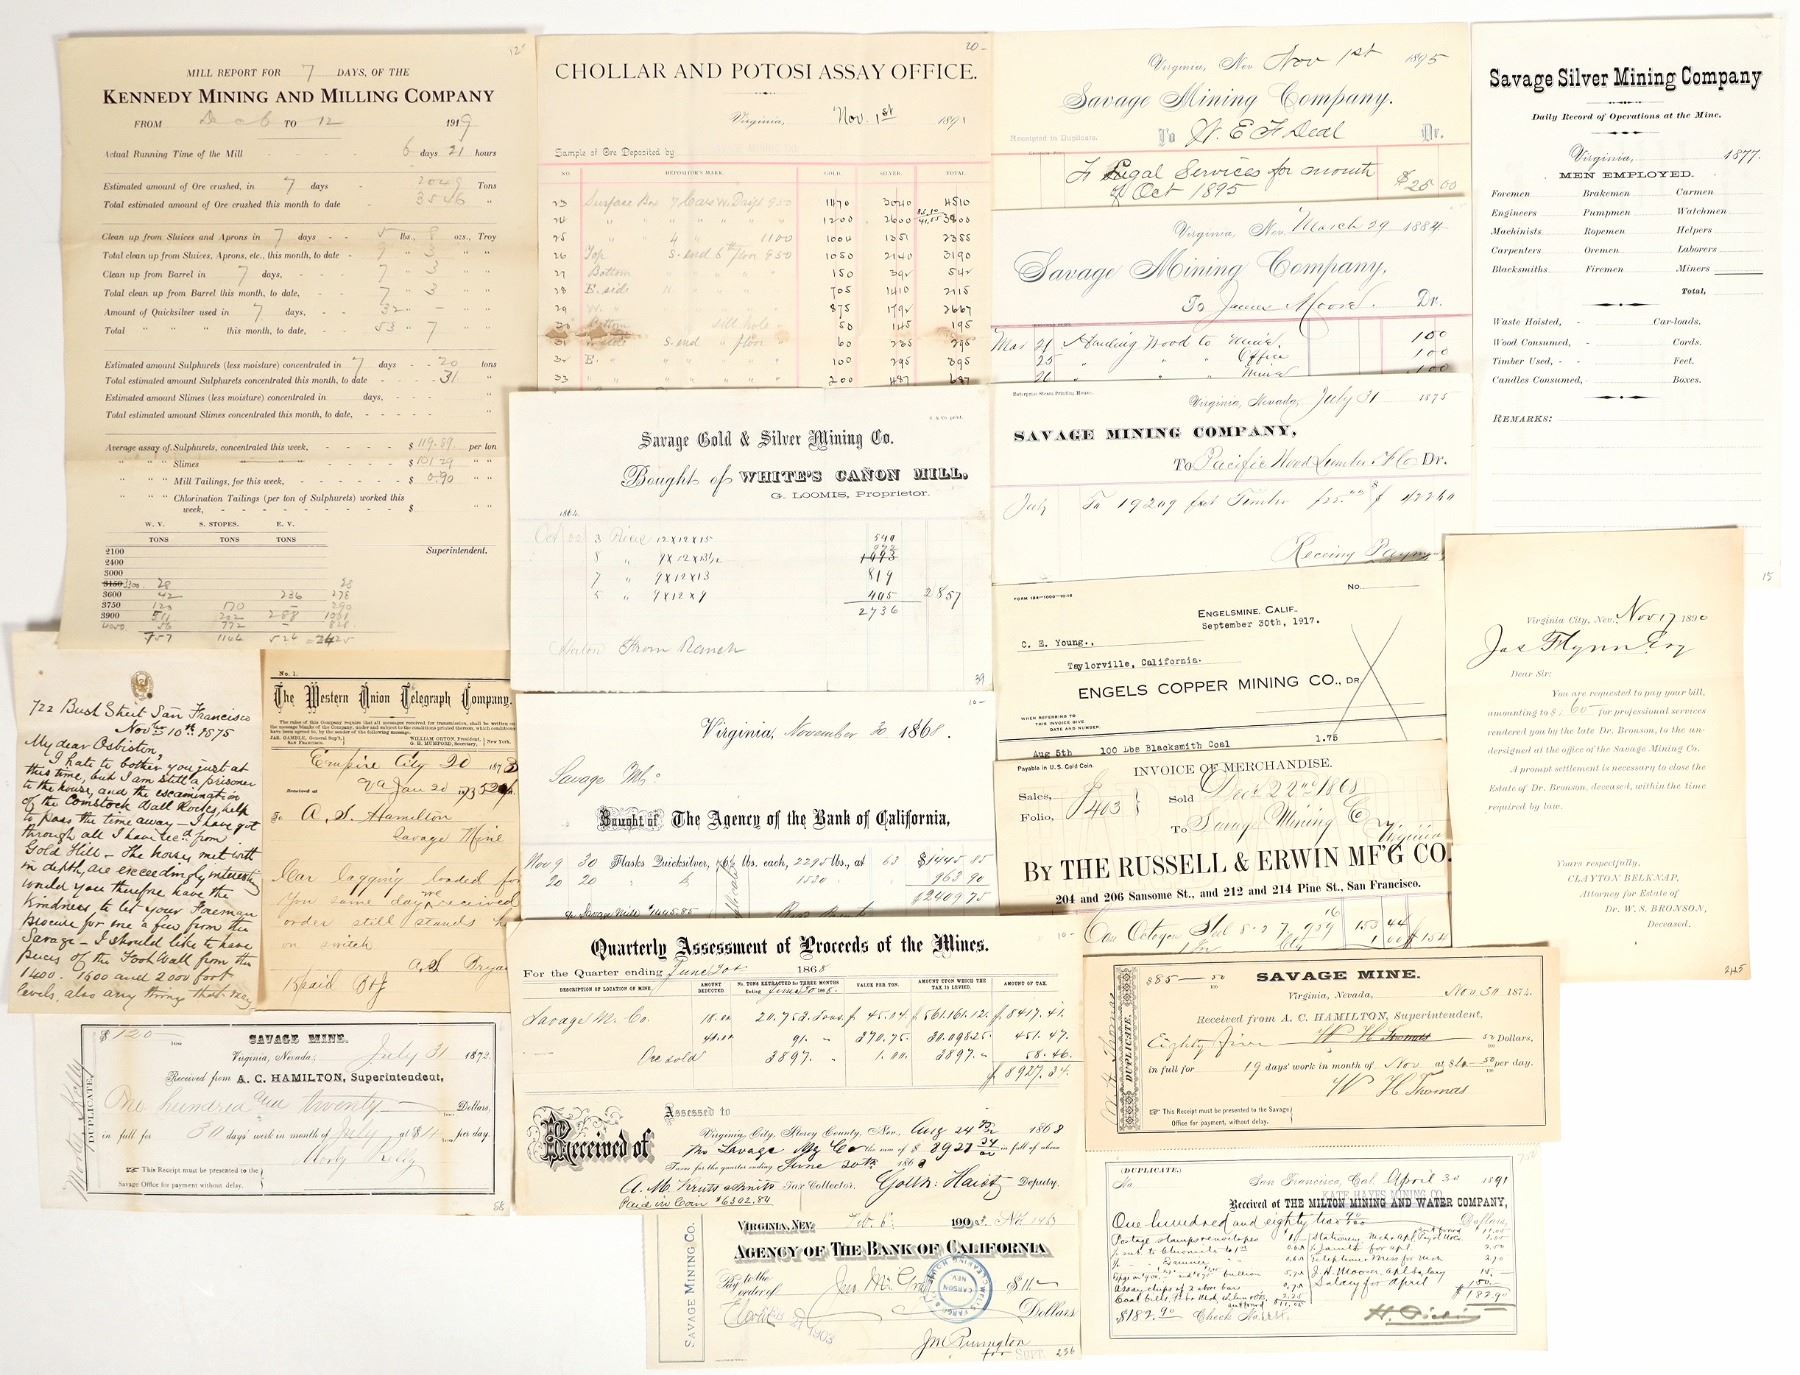 MILL REPORT FOR 7 DAYS, OF THE
KENNEDY MINING AND MILLING COMPANY
FROM Dec 6 TO 12 1919
Actual Running Time of the Mill - - - - - 6 days 21 hours
Estimated amount of Ore crushed, in 7 days - - 2049 Tons
Total estimated amount of Ore crushed this month to date - 3546 "
Clean up from Sluices and Aprons in 7 days - - 5 lbs., 8 ozs., Troy
Total clean up from Sluices, Aprons, etc., this month, to date - 9 " 3 " "
Clean up from Barrel in 7 days, - - - 7 " 3 " "
Total clean up from Barrel this month, to date, - - 7 " 3 " "
Amount of Quicksilver used in 7 days, - - 32 " - "
Total " " " this month, to date, - - 53 " 7 "
Estimated amount Sulphurets (less moisture) concentrated in 7 days - - 20 tons
Total estimated amount Sulphurets concentrated this month, to date - - 31 "
Estimated amount Slimes (less moisture) concentrated in days, - -
Total estimated amount Slimes concentrated this month, to date, - - "
Average assay of Sulphurets, concentrated this week, - - - - $ 119.89 per ton
" " " Slimes - - - - $ 101.29 " "
" " " Mill Tailings, for this week, - - - - - $ 0.90 " "
" " " Chlorination Tailings (per ton of Sulphurets) worked this
week, - - - - - - - - $ " "
W. V. S. STOPES. E. V.
TONS TONS TONS
2100 Superintendent.
2400
3000
3150 3300 28 28
3600 42 236 278
3750 120 170 - 290
3900
4050
757 1146 526 2425
20-
CHOLLAR AND POTOSI ASSAY OFFICE.
Virginia, Nov. 1st 1891
Sample of Ore Deposited by SAVAGE MINING CO.
NO. DEPOSITOR'S MARK. GOLD. SILVER. TOTAL.
23 Surface Box 7 Cars W. Drift 950 1470 3040 4510
24 " " " " " " 1200 2600 3800
25 " " 4 " 1100 1004 1351 2355
26 Top S. end 5th floor 950 1050 2140 3190
27 Bottom " " " 150 392 542
28 E. side 705 1410 2115
29 W. " 875 1792 2667
30 Bottom sill hole 50 145 195
31 S. end " floor 60 235 295
32 E. " " " " 100 295 395
33 " " " " 200 487 687
Virginia, Nev Nov 1st 1895
Savage Mining Company.
Receipted in Duplicate. To W. E. F. Deal Dr.
For Legal Services for month
of Oct 1895 $25.00
Virginia, Nev. March 29 1884
Savage Mining Company,
To James Moore. Dr.
Mar 21 Hauling Wood to Mine. 100
25 " " " Office 100
26 " " " Mine 100
Savage Silver Mining Company
Daily Record of Operations at the Mine.
Virginia, 1877.
MEN EMPLOYED.
Foremen Brakemen Carmen
Engineers Pumpmen Watchmen
Machinists Ropemen Helpers
Carpenters Oremen Laborers
Blacksmiths Firemen Miners
Total,
Waste Hoisted, - Car-loads.
Wood Consumed, - Cords.
Timber Used, - - Feet.
Candles Consumed, - Boxes.
REMARKS:
15
Savage Gold & Silver Mining Co.
Bought of WHITE'S CAÑON MILL.
G. LOOMIS, Proprietor.
1864.
Oct 22 3 Pieces 12 x 12 x 15 540
8 " 9 x 12 x 13½
7 " 9 x 12 x 13 819
5 " 9 x 12 x 9 405 2857
2736
From Ranch
39
Enterprise Steam Printing House.
Virginia, Nevada, July 31 1875
SAVAGE MINING COMPANY,
To Pacific Wood Lumber & F Co Dr.
July To 19209 feet Timber $22.00 $ 422.60
Receiving Paym
FORM 124-1000-10-16 No.
ENGELSMINE, CALIF.
September 30th, 1917.
C. E. Young.,
Taylorville, California.
ENGELS COPPER MINING CO., DR.
WHEN REFERRING TO
THIS INVOICE GIVE
DATE AND NUMBER.
Aug 5th 100 Lbs Blacksmith Coal 1.75
Virginia City, Nev., Nov 17 1890
Jas Flynn Esq
Dear Sir:
You are requested to pay your bill,
amounting to $ 60 for professional services
rendered you by the late Dr. Bronson, to the un-
dersigned at the office of the Savage Mining Co.
A prompt settlement is necessary to close the
Estate of Dr. Bronson, deceased, within the time
required by law.
Yours respectfully,
CLAYTON BELKNAP,
Attorney for Estate of
Dr. W. S. BRONSON,
Deceased.
722 Bush Street San Francisco
Nov 10th 1875
My dear Osbiston,
I hate to bother you just at
this time, but I am still a prisoner
to the house, and the examination
of the Comstock Wall Rocks, help
to pass the time away - I have got
through all I have rec'd from
Gold Hill - The horses, met with
in depth, are exceedingly interesting
would you therefore have the
kindness to let your Foreman
procure for me a few from the
Savage - I should like to have
pieces of the Foot Wall from the
1400. 1600 and 2000 foot
levels, also any thing that may
No. 1.
The Western Union Telegraph Company.
The rules of this Company require that all messages received for transmission, shall be written
on the message blanks of the Company, under and subject to the conditions printed thereon,
JAS. GAMBLE, General Sup't., SAN FRANCISCO. WILLIAM ORTON, President, G. H. MUMFORD, Secretary, New York.
Empire City 20 1873
Received at Va Jan 20 1873
To A. S. Hamilton
Savage Mine
Car lagging loaded for
you same day we received
order still stands here
on switch
Bryan
10-
Virginia, November 20 1868.
Savage Mg Co
Bought of The Agency of the Bank of California,
Nov 9 30 Flasks Quicksilver, 76½ lbs. each, 2295 lbs., at 63 $1445.85
20 20 " " 1530 963 90
$2409 75
Payable in U.S. Gold Coin. INVOICE OF MERCHANDISE.
Sales, Sold Dec 22nd 1868
Folio, 403 To Savage Mining Co Virginia
By THE RUSSELL & ERWIN MF'G CO.
204 and 206 Sansome St., and 212 and 214 Pine St., San Francisco.
Octagon Steel
Quarterly Assessment of Proceeds of the Mines.
For the Quarter ending June 30th 1868
DESCRIPTION OF LOCATION OF MINE. AMOUNT DEDUCTED. No. TONS EXTRACTED for THREE MONTHS Ending June 30 1868. VALUE PER TON. AMOUNT UPON WHICH THE TAX IS LEVIED. AMOUNT OF TAX.
Savage M. Co. 18.00 20.752 Tons $ 45.04 $561.161.12 $ 8417.41
40.00 91. " 370.75 30.098.25 451.47
Ore sold 3897. " 1.00 3897. " 58.46
$ 8927.34
Assessed to
Virginia City, Storey County, Nev. Aug 24th 1868
Received of The Savage Mg Co the sum of $ 8927 34/100 in full of above
Taxes for the quarter ending June 30th 1868
Tax Collector. Deputy.
Paid in Coin $6302.84
$ 85 - 50/100 SAVAGE MINE.
Virginia, Nevada, Nov. 30 1874.
Received from A. C. HAMILTON, Superintendent,
Eighty five 50/100 Dollars,
in full for 19 days' work in month of Nov at $4.50 per day.
W H Thomas
DUPLICATE.
This Receipt must be presented to the Savage
Office for payment, without delay.
$ 120 SAVAGE MINE.
Virginia, Nevada, July 31 1872
Received from A. C. HAMILTON, Superintendent,
One hundred and twenty Dollars,
in full for 30 days' work in month of July at $4 per day.
Morty Kelly
Morty Kelly
DUPLICATE.
This Receipt must be presented to the
Savage Office for payment without delay.
SAVAGE MINING CO.
VIRGINIA, NEV. Feb. 6 190 No 1463
AGENCY OF THE BANK OF CALIFORNIA
Pay to the
order of $11
Eleven Dollars
WELLS FARGO & CO
CLEARING HOUSE
CARSON
NEV
1903
SUPT.
236
(DUPLICATE.)
No. San Francisco, Cal. April 30 1891
KATE HAYES MINING CO.
Received of THE MILTON MINING AND WATER COMPANY,
One hundred and eighty two 90/100 Dollars,
Postage stamps & envelopes
Salary for April 150.-
$182.90
$182.90 Check No.